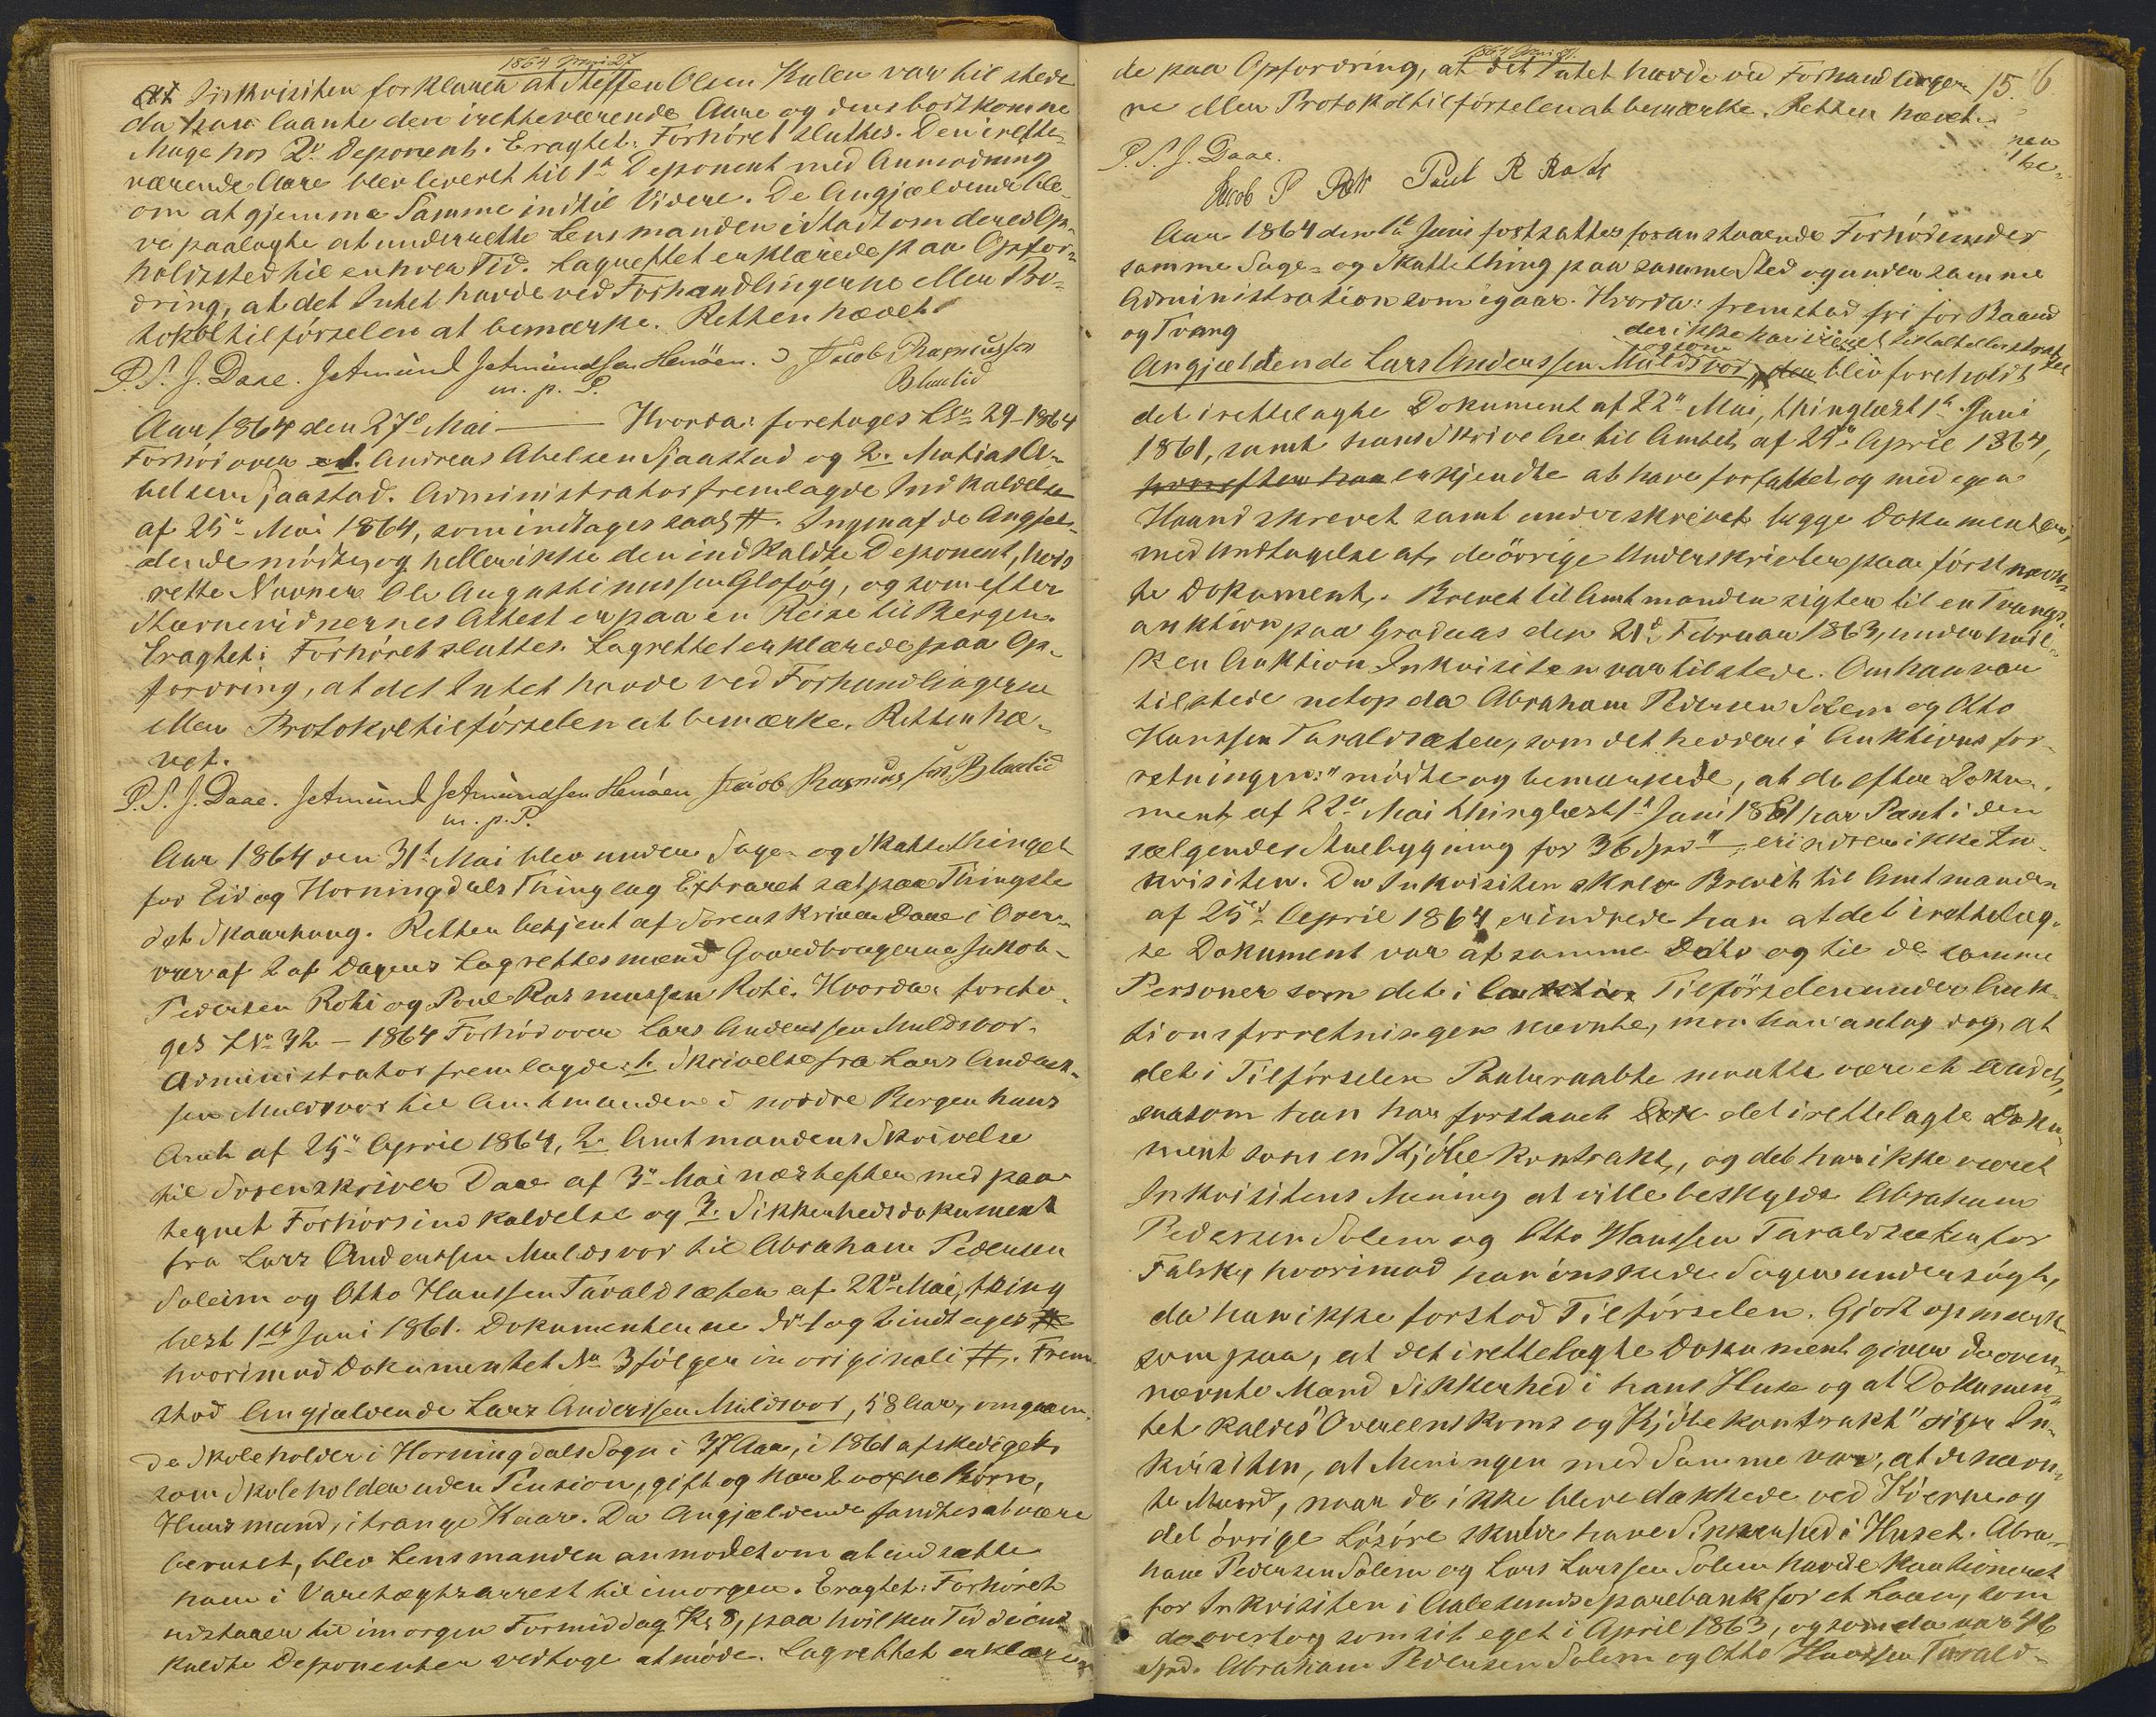 1864 Mai 27
Inkvisiten forklarer at Steffen Olsen Kulen var til stede
da han laante den iretteværende Aare og dens bortkomne
Mage hos 2den Deponent. Eragtet: Forhöret sluttes. Den irette-
værende Aare blev leveret til 1ste Deponent med Anmodning
om at gjemme Samme indtil Videre. De Angjældende ble-
ve paalagte at underrette Lensmanden i Stadt om deres Op-
holdssted til enhver Tid. Lagrettet erklærede paa Opfor-
dring, at det Intet havde ved Forhandlingerne eller Pro-
tokoltilförselen at bemærke. Retten hævet.
P.S.J. Daae. Jetmund Jetmundsen Henöen. Jacob Rasmussen
m. p. P. Blaalid
Aar 1864 den 27de Mai — Hvorda: foretoges LNo 29-1864
Forhör over 1. Andreas Abelsen Sjaastad og 2. Matias A-
belsen Sjaastad. Administrator fremlagde Indkaldelse
af 25de Mai 1864, som indtages saal. #. Ingen af de Angjæl-
dende mödte, og heller ikke den indkaldte Deponent, hvis
rette Navn er Ole Augustinussen Glofög, og som efter
Stævnevidnernes Attest er paa en Reise til Bergen.
Eragtet: Forhöret sluttes. Lagrettet erklærede paa Op-
fordring, at det Intet havde ved Forhandlingerne
eller Protokoltilförselen at bemærke. Retten hæ-
vet.
P.S.J. Daae. Jetmund Jetmundsen Henöen Jacob Rasmussen Blaalid
m. p. P.
Aar 1864 den 31te Mai blev under Sage- og Skattethinget
for Eid og Horningdals Thinglag Extraret sat paa Thingste-
det Skaarhaug. Retten betjent af Sorenskriver Daae i Over-
vær af 2 af Dagens Lagrettesmænd Gaardbrugerne Jakob
Pedersen Roti og Poul Rasmussen Roti. Hvorda: foreto-
ges LNo 32 - 1864 Forhör over Lars Anderssen Muldsvor.
Administrator fremlagde: 1. Skrivelse fra Lars Anders-
sen Muldsvor til Amtmanden i nordre Bergenhuus
Amt af 25de April 1864, 2. Amtmandens Skrivelse
til Sorenskriver Daae af 3de Mai næstefter med paa-
tegnet Forhörsindkaldelse og 3. Sikkerhedsdokument
fra Lars Anderssen Muldsvor til Abraham Pedersen
Soleim og Otto Hanssen Taraldsæten af 22de Mai, thing-
læst 1ste Juni 1861. Dokumenterne No 1 og 2 indtages #
hvorimod Dokumentet No 3 fölger in originali #. Frem-
stod Angjældende Lars Anderssen Muldsvor, 58 Aar, omgaaen-
de Skoleholder i Horningdals Sogn i 37 Aar, i 1861 afskediget
som Skoleholder uden Pension, gift og har 2 voxne Börn,
Huusmand, i trange Kaar. Da Angjældende fandtes at være
beruset, blev Lensmanden anmodet om at indsætte
ham i Varetægtsarrest til imorgen. Eragtet: Forhöret
udstaaer til imorgen Formiddag Kl 8, paa hvilken Tid de ind-
kaldte Deponenter vedtoge at möde. Lagrettet erklære-
1864 Mai 31.
15. 6
de paa Opfordring, at det Intet havde ved Forhandlinger-
ne eller Protokoltilförselen at bemærke. Retten hævet.
P.S.J. Daae.
Jacob P Roti Poul R Roti
Aar 1864 den 1ste Juni fortsattes foranstaaende Forhör under
samme Sage- og Skattething paa samme Sted og under samme
Administration som igaar. Hvorda: fremstod fri for Baand
og Tvang
der ikke har været tiltalt eller straffet
og som
Angjældende Lars Anderssen Muldsvor, den blev foreholdt
det irettelagte Dokument af 22de Mai, thinglæst 1ste Juni
1861, samt hans Skrivelse til Amtet af 25de April 1864,
hvorefter han erkjendte at have forfattet og med egen
Haand skrevet samt underskrevet begge Dokumenter,
med Undtagelse af de övrige Underskrivter paa förstnævn-
te Dokument. Brevet til Amtmanden sigter til en Tvangs-
auktion paa Grodaas den 21de Februar 1863, under hvil-
ken Auktion Inkvisiten var tilstede. Om han var
tilstede netop da Abraham Pedersen Solem og Otto
Hanssen Taraldsæten, som det hedder i Auktionsfor-
retningen: "mödte og bemærkede, at de efter Doku-
ment af 22de Mai thinglæst 1ste Juni 1861 har Pant i den
sælgendes Stuebygning for 36 Spd" erindrer ikke In-
kvisiten. Da Inkvisiten skrev Brevet til Amtmanden
af 25de April 1864 erindrede han at det irettelag-
te Dokument var af samme Dato og til de samme
Personer som det i Tilförselen under Auk-
tionsforretningen nævnte, men han antog dog, at
det i Tilförselen Paaberaabte maatte være et Andet,
saasom han har forstaaet det irettelagte Doku-
ment som en Kjöbekontrakt, og det har ikke været
Inkvisitens Mening at ville beskylde Abraham
Pedersen Solem og Otto Hanssen Taraldsæten for
Falsk, hvorimod han önskede Sagen undersögt,
da han ikke forstod Tilförselen. Gjort opmærk-
som paa, at det irettelagte Dokument giver de oven-
nævnte Mænd Sikkerhed i hans Huse og at Dokumen-
tet kaldes "Overeenskoms og Kjöbekontrakt" siger In-
kvisiten, at Meningen med Samme var, at de nævn-
te Mænd, naar de ikke bleve dækkede ved Kjörne og
det övrige Lösöre skulde have Sikkerhed i Huset. Abra-
ham Pedersen Solem og Lars Larssen Solem havde kautioneret
for Inkvisiten i Aalesunds Sparebank for et Laan, som
de overtog som sit eget i April 1863, og som da var 46
Spd. Abraham Pedersen Solem og Otto Hanssen Tarald-